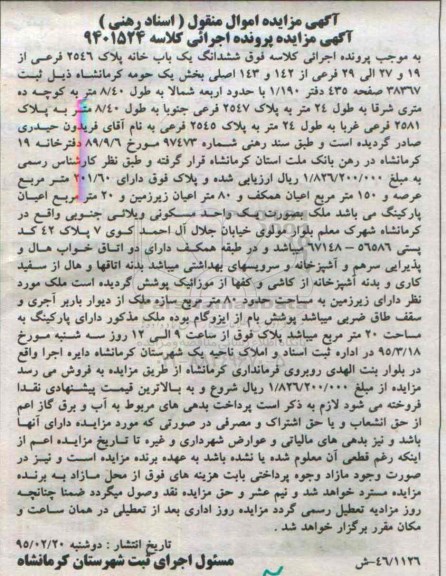 آگهی مزایده اموال منقول ( اسناد رهنی )
آگهی مزایده پرونده اجرائی کلاسه ۹۴۰۱۵۲۴
به موجب پرونده اجرائی کلاسه فوق ششدانگ یک باب خانه پلاک ۲۵۴۶ فرعی از
۱۹ و ۲۷ الی ۲۹ فرعی از ۱۴۲ و ۱۴۳ اصلی بخش یک حومه کرمانشاه ذیل ثبت
۳۸۳۶۷ صفحه ۴۳۵ دفتر ۱/۱۹۰ با حدود اربعه شمالا به طول ۸/۴۰ متر به کوچه ده
متری شرقا به طول ۲۴ متر به پلاک ۲۵۴۷ فرعی جنوبا به طول ۸/۴۰ متر به پلاک
۲۵۸۱ فرعی غربا به طول ۲۴ متر به پلاک ۲۵۴۵ فرعی به نام آقای فریدون حیدری
صادر گردیده است و طبق سند رهنی شماره ۹۷۴۷۳ مورخ ۸۹/۹/۶ دفترخانه ۱۹
کرمانشاه در رهن بانک ملت استان کرمانشاه قرار گرفته و طبق نظر کارشناس رسمی
به مبلغ ۱/۸۲۶/۲۰۰/۰۰۰ ریال ارزیابی شده و پلاک فوق دارای ۲۰۱/۶۰ متر مربع
عرصه و ۱۵۰ متر مربع اعیان همکف و ۸۰ متر اعیان زیرزمین و ۲۰ متر مربع اعیان
پارکینگ می باشد ملک بصورت یک واحد مسکونی ویلائی جنوبی واقع در
کرمانشاه شهرک معلم بلوار مولوی خیابان جلال آل احمد کوی ۷ پلاک ۴۲ کد
پستی ۵۶۵۸۶ – ۶۷۱۴۸ میباشد و در طبقه همکف دارای دو اتاق خواب هال و
پذیرایی سرهم و آشپزخانه و سرویسهای بهداشتی میباشد بدنه اتاقها و هال از سفید
کاری و بدنه آشپزخانه از کاشی و کفها از موزائیک پوشش گردیده است ملک مورد
نظر دارای زیرزمین به مساحت حدود ۸۰ متر مربع سازه ملک از دیوار باربر آجری و
سقف طاق ضربی میباشد پوشش بام از ایزوگام بوده ملک مذکور دارای پارکینگ به
مساحت ۲۰ متر مربع میباشد پلاک فوق از ساعت ۹ الی ۱۲ روز سه شنبه مورخ
۹۵/۳/۱۸ در اداره ثبت اسناد و املاک ناحیه یک شهرستان کرمانشاه دایره اجرا واقع
در بلوار بنت الهدی روبروی فرمانداری کرمانشاه از طریق مزایده به فروش می رسد
مزایده از مبلغ ۱/۸۲۶/۲۰۰/۰۰۰ ریال شروع و به بالاترین قیمت پیشنهادی نقدا
فروخته می شود لازم به ذکر است پرداخت بدهی های مربوط به آب و برق گاز اعم
از حق انشعاب و یا حق اشتراک و مصرفی در صورتی که مورد مزایده دارای آنها
باشد و نیز بدهی های مالیاتی و عوارض شهرداری و غیره تا تاریخ مزایده اعم از
اینکه رغم قطعی آن معلوم شده یا نشده باشد به عهده برنده مزایده است و نیز در
صورت وجود مازاد وجوه پرداختی بابت هزینه های فوق از محل مازاد به برنده
مزایده مسترد خواهد شد و نیم عشر و حق مزایده نقد وصول میگردد ضمنا چنانچه
روز مزادیه تعطیل رسمی گردد مزایده روز اداری بعد از تعطیلی در همان ساعت و
مکان مقرر برگزار خواهد شد .
تاریخ انتشار : دوشنبه ۹۵/۰۲/۲۰
۴۶/۱۱۲۶–ش
مسئول اجرای ثبت شهرستان کرمانشاه